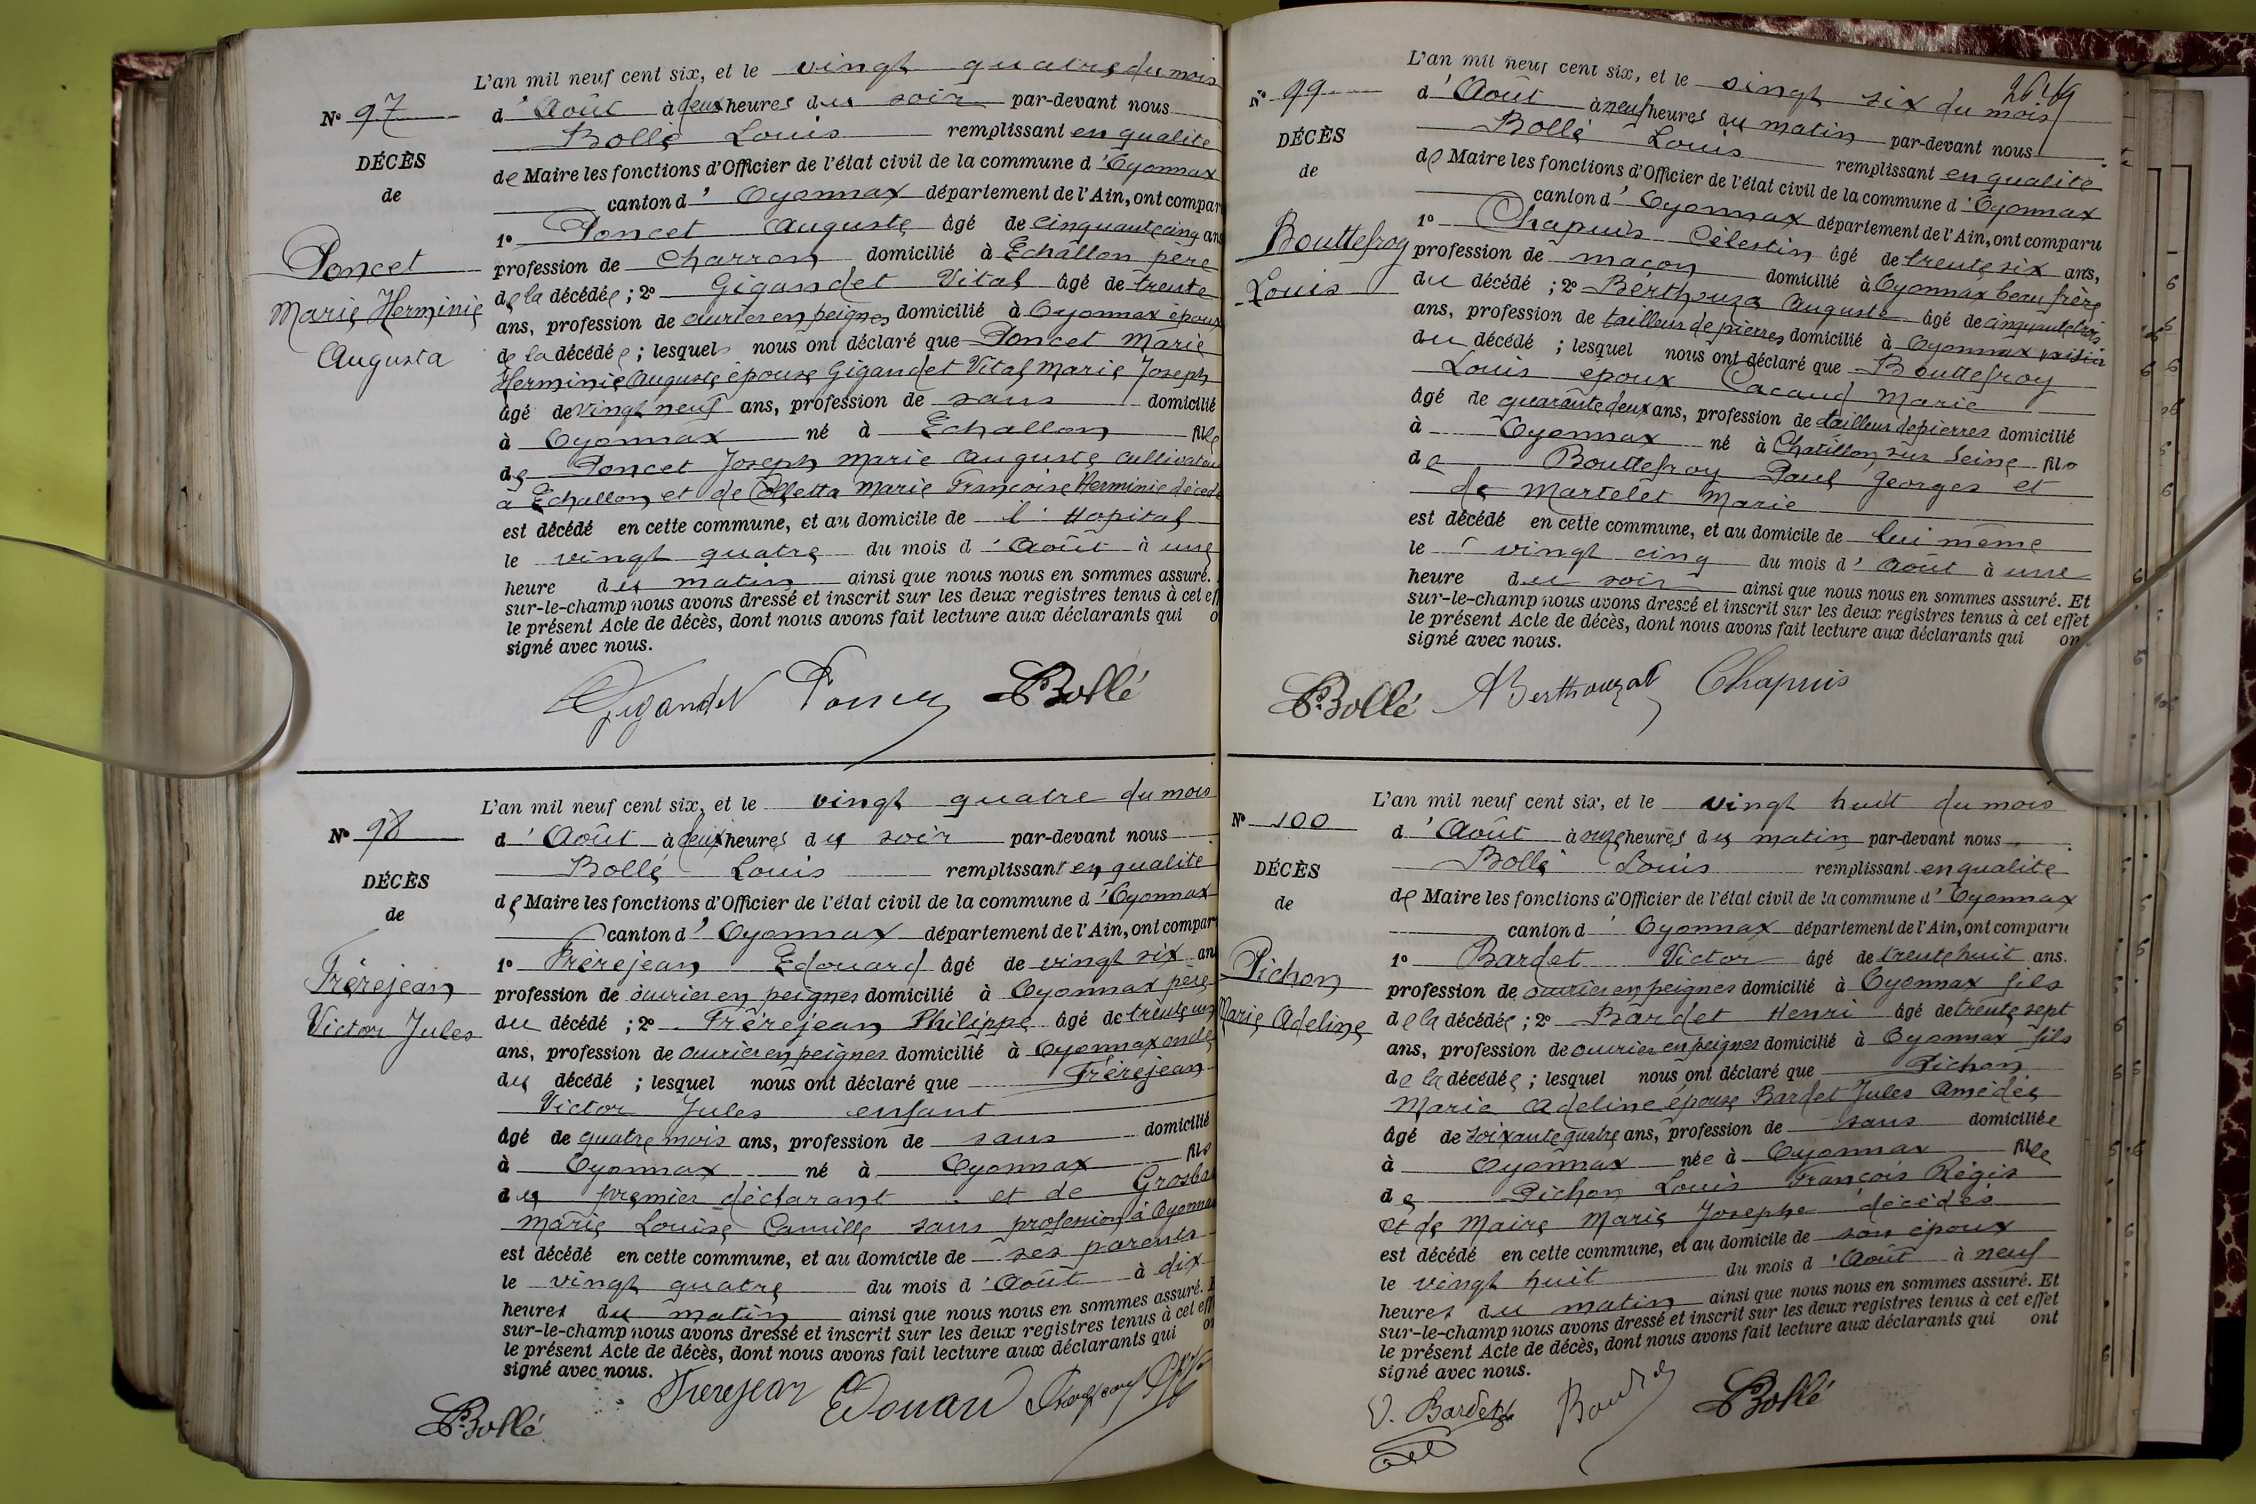 L'an mil neuf cent six, et le vingt quatre du mois
N° 97
d'Août à deux heures du soir par-devant nous
Bollé Louis remplissant en qualité
DÉCÈS
de Maire les fonctions d'Officier de l'état civil de la commune d'Oyonnax
de
canton d'Oyonnax département de l'Ain, ont compar
1° Poncet Auguste âgé de cinquante cinq ans
Poncet
Marie Herminie
Augusta
profession de charron domicilié à Echallon père
de la décédée ; 2° Gigandet Vital âgé de trente
ans, profession de ouvrier en peignes domicilié à Oyonnax époux
de la décédée ; lesquels nous ont déclaré que Poncet Marie
Herminie Auguste épouse Gigandet Vital Marie Joseph
âgé de vingt neuf ans, profession de sans domicilié
à Oyonnax né à Echallon fille
de Poncet Joseph Marie Auguste cultivateur
à Echallon et de Colletta Marie Françoise Herminie décéd
est décédé en cette commune, et au domicile de l'Hopital
le vingt quatre du mois d'Août à une
heure du matin ainsi que nous nous en sommes assuré.
sur-le-champ nous avons dressé et inscrit sur les deux registres tenus à cet eff
le présent Acte de décès, dont nous avons fait lecture aux déclarants qui o
signé avec nous.
Gigandet Poncet Bollé
L'an mil neuf cent six, et le vingt quatre du mois
N° 98
d'Août à deux heures du soir par-devant nous
Bollé Louis remplissant en qualité
DÉCÈS
de Maire les fonctions d'Officier de l'état civil de la commune d'Oyonnax
de
canton d'Oyonnax département de l'Ain, ont compar
Frèrejean
Victor Jules
1° Frèrejean Edouard âgé de vingt six an
profession de ouvrier en peignes domicilié à Oyonnax père
du décédé ; 2° Frèrejean Philippe âgé de trente un
ans, profession de ouvrier en peignes domicilié à Oyonnax oncle
du décédé ; lesquel nous ont déclaré que Frèrejean
Victor Jules enfant
âgé de quatre mois ans, profession de sans domicilié
à Oyonnax né à Oyonnax fils
du premier déclarant et de Grosbas
Marie Louise Camille sans profession à Oyonnax
est décédé en cette commune, et au domicile de ses parents
le vingt quatre du mois d'Août à dix
heures du matin ainsi que nous nous en sommes assuré.
sur-le-champ nous avons dressé et inscrit sur les deux registres tenus à cet eff
le présent Acte de décès, dont nous avons fait lecture aux déclarants qui on
signé avec nous.
Bollé Frerejean Edouard
L'an mil neuf cent six, et le vingt six du mois
N° 99
d'Août à neuf heures du matin par-devant nous
Bollé Louis remplissant en qualité
DÉCÈS
de Maire les fonctions d'Officier de l'état civil de la commune d'Oyonnax
de
canton d'Oyonnax département de l'Ain, ont comparu
Bouttefroy
Louis
1° Chapuis Célestin âgé de trente six ans,
profession de maçon domicilié à Oyonnax beau frère
du décédé ; 2° Berthouza Auguste âgé de cinquante trois
ans, profession de tailleur de pierres domicilié à Oyonnax voisin
du décédé ; lesquel nous ont déclaré que Bouttefroy
Louis époux Cacaud Marie
âgé de quarante deux ans, profession de tailleur de pierres domicilié
à Oyonnax né à Chatillon sur Seine fils
de Bouttefroy Paul Georges et
de Martelet Marie
est décédé en cette commune, et au domicile de lui même
le vingt cinq du mois d'Août à une
heure du soir ainsi que nous nous en sommes assuré. Et
sur-le-champ nous avons dressé et inscrit sur les deux registres tenus à cet effet
le présent Acte de décès, dont nous avons fait lecture aux déclarants qui on
signé avec nous.
Bollé A Berthouzat Chapuis
L'an mil neuf cent six, et le vingt huit du mois
N° 100
d'Août à onze heures du matin par-devant nous
Bollé Louis remplissant en qualité
DÉCÈS
de Maire les fonctions d'Officier de l'état civil de la commune d'Oyonnax
de
canton d'Oyonnax département de l'Ain, ont comparu
Pichon
Marie Adeline
1° Bardet Victor âgé de trente huit ans.
profession de ouvrier en peignes domicilié à Oyonnax fils
de la décédée ; 2° Bardet Henri âgé de trente sept
ans, profession de ouvrier en peignes domicilié à Oyonnax fils
de la décédée ; lesquel nous ont déclaré que Pichon
Marie Adeline épouse Bardet Jules Amédée
âgé de soixante quatre ans, profession de sans domiciliée
à Oyonnax née à Oyonnax fille
de Pichon Louis François Régis
et de Maire Marie Josephe décédés
est décédé en cette commune, et au domicile de son époux
le vingt huit du mois d'Août à neuf
heures du matin ainsi que nous nous en sommes assuré. Et
sur-le-champ nous avons dressé et inscrit sur les deux registres tenus à cet effet
le présent Acte de décès, dont nous avons fait lecture aux déclarants qui ont
signé avec nous.
V. Bardet Bardet Bollé